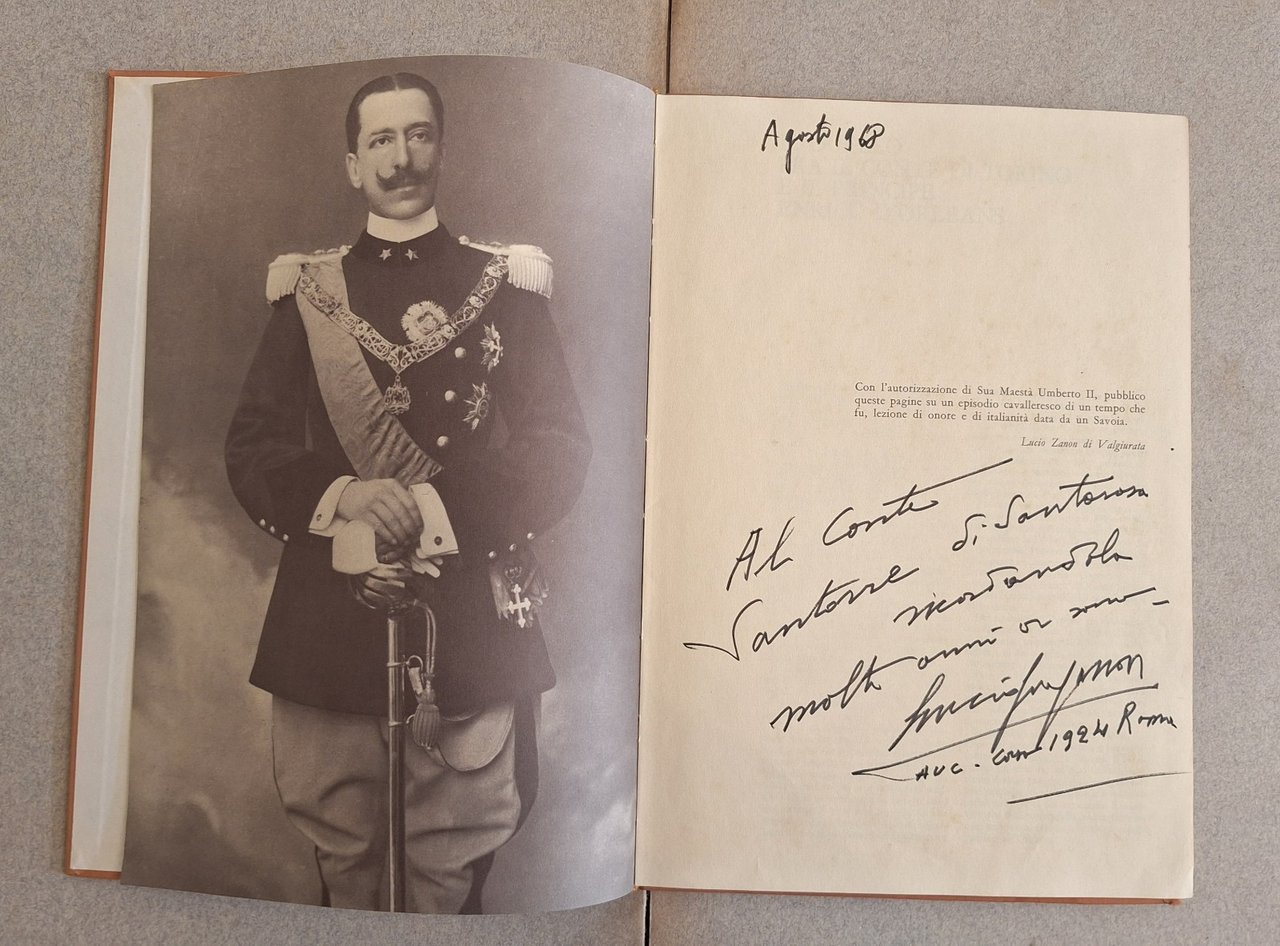 Agosto 1968
Con l'autorizzazione di Sua Maestà Umberto II, pubblico
queste pagine su un episodio cavalleresco di un tempo che
fu, lezione di onore e di italianità data da un Savoia.
Lucio Zanon di Valgiurata
Al Conte
Santorre di Santarosa
ricordandola
molti anni or sono -
AUC. 1924 Roma